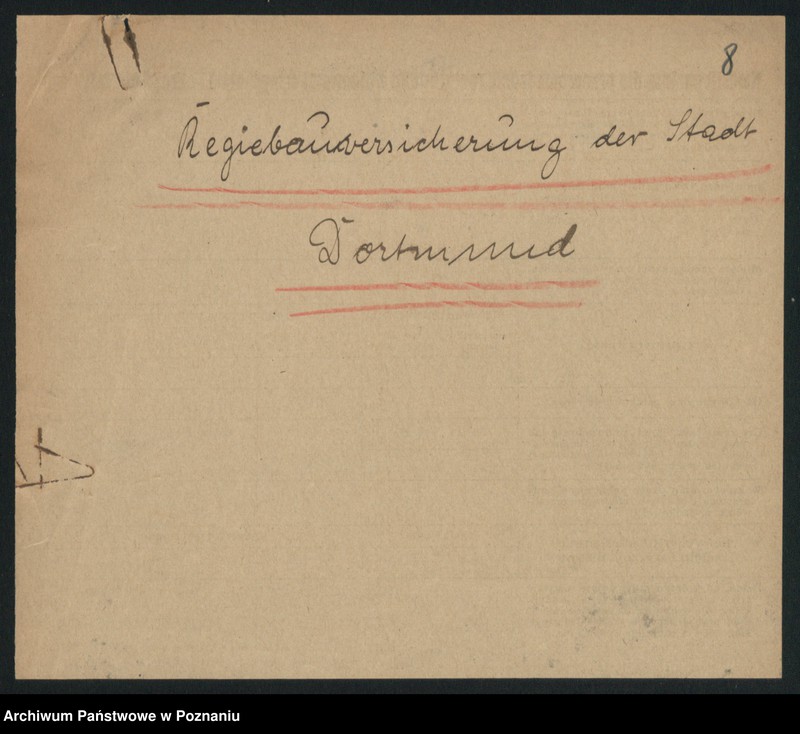 8
Regiebauversicherung der Stadt
Dortmund
Archiwum Państwowe w Poznaniu